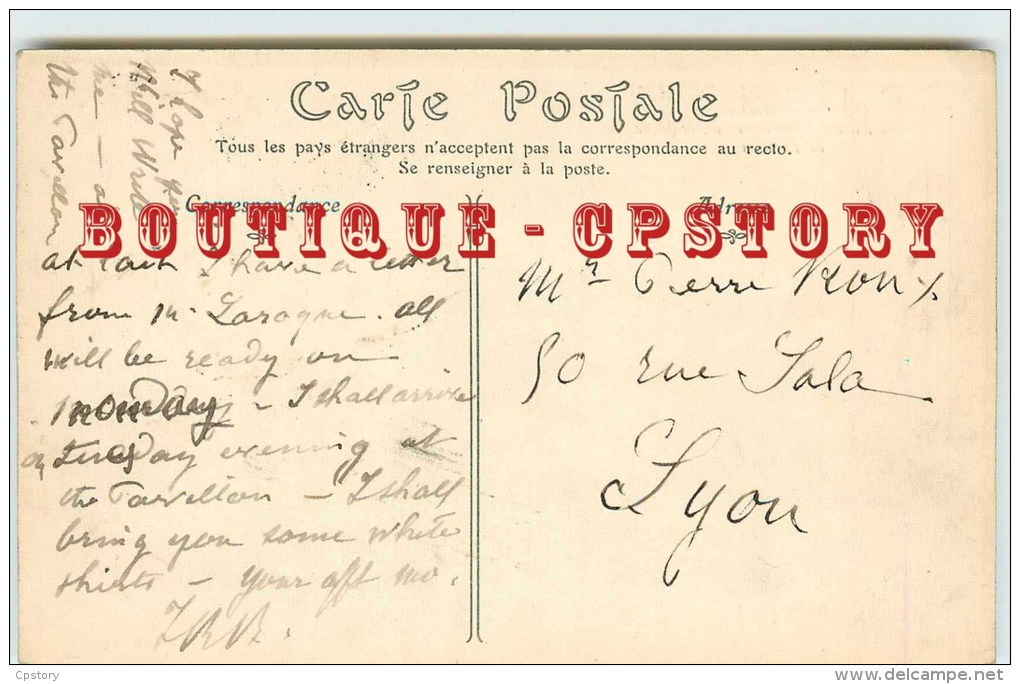 Carte Postale
Tous les pays étrangers n'acceptent pas la correspondance au recto.
Se renseigner à la poste.
Correspondance
Adresse
BOUTIQUE - CPSTORY
at last I have a letter
from M. Laroque. all
will be ready on
monday - I shall arrive
on tuesday evening at
the Pavillon - I shall
bring you some white
shirts - your afft mo.
I hope you
will write
me -
the Pavillon
Mr Pierre Roux
50 rue Sala
Lyon
Cpstory
www.delcampe.net